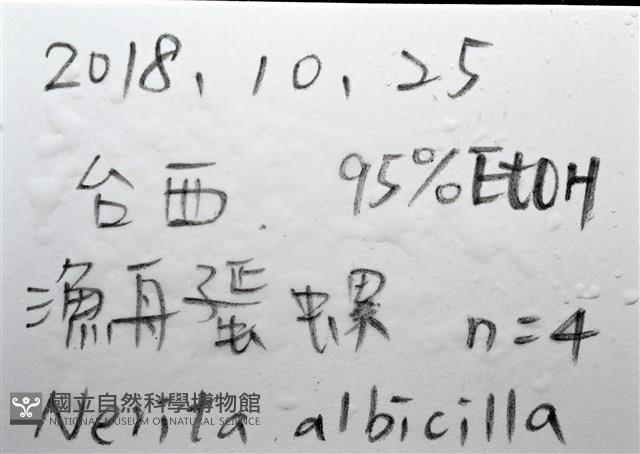 2018、10、25
台西 95% EtOH
漁舟蜑螺 n=4
國立自然科學博物館
NATIONAL MUSEUM OF NATURAL SCIENCE
Nerita albicilla